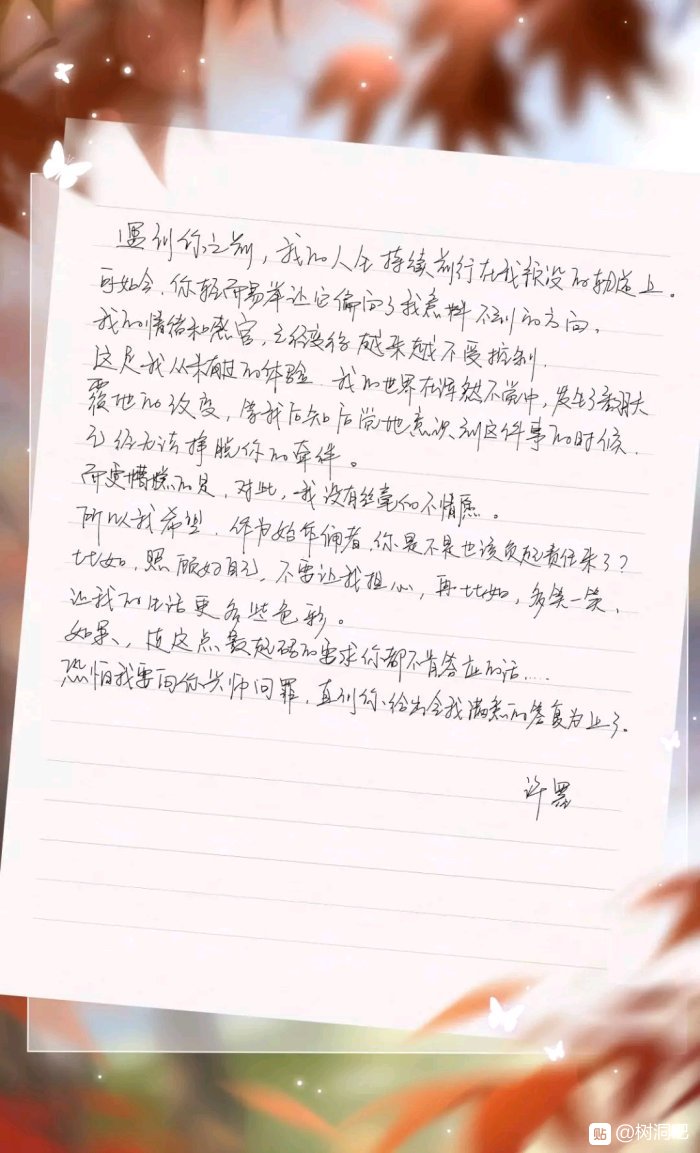 遇到你之前，我的人生持续前行在我预设的轨道上。
可如今，你轻而易举让它偏向了我意料不到的方向，
我的情绪和感官，已经变得越来越不受控制，
这是我从未有过的体验，我的世界在浑然不觉中，发生了翻天
覆地的改变，等我后知后觉地意识到这件事的时候，
已经无法挣脱你的牵绊。
而更糟糕的是，对此，我没有丝毫的不情愿。
所以我希望，作为始作俑者，你是不是也该负起责任来了？
比如，照顾好自己，不要让我担心，再比如，多笑一笑，
让我的生活更多些色彩。
如果，连这点最起码的要求你都不肯答应的话……
恐怕我要向你兴师问罪，直到你给出令我满意的答复为止了。
许墨
贴 @树洞吧